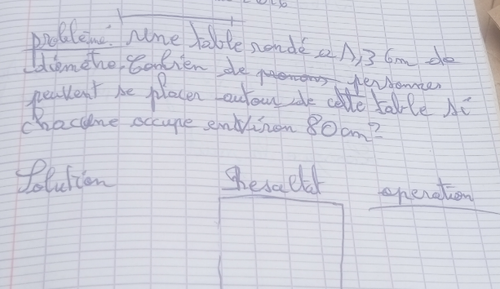 problème: Une table rondé a 1,36m de
diamètre. Conbien de personnes
peuvent se placer autour de cette table si
chacune occupe environ 80cm?
Solution Resaltat operation